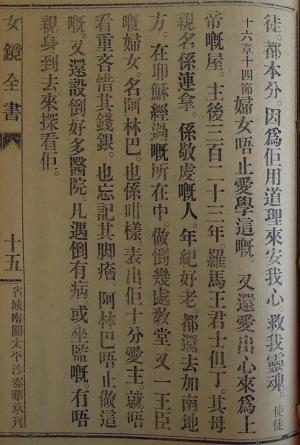 徒。都本分。因爲佢用道理來安我心。救我靈魂。使徒
十六章十四節婦女唔止愛學這嘅。又還愛出心來爲上
帝嘅屋。主後三百二十三年。羅馬王君士但丁。其母
親名係連拿。係敬虔嘅人。年紀好老。都還去加南地
方。在耶穌經過嘅所在中。做倒幾處敎堂。又一王臣
嘅婦女名阿林巴。也係咁樣。表出佢十分愛主。就唔
看重吝惜其錢銀。也忘記其脚。阿林巴唔止做這
嘅。又還設倒好多醫院。凡遇倒有病。或坐監嘅。有唔
親身到去來探看佢。
女鏡全書
十五
省城南關太平沙華承刋